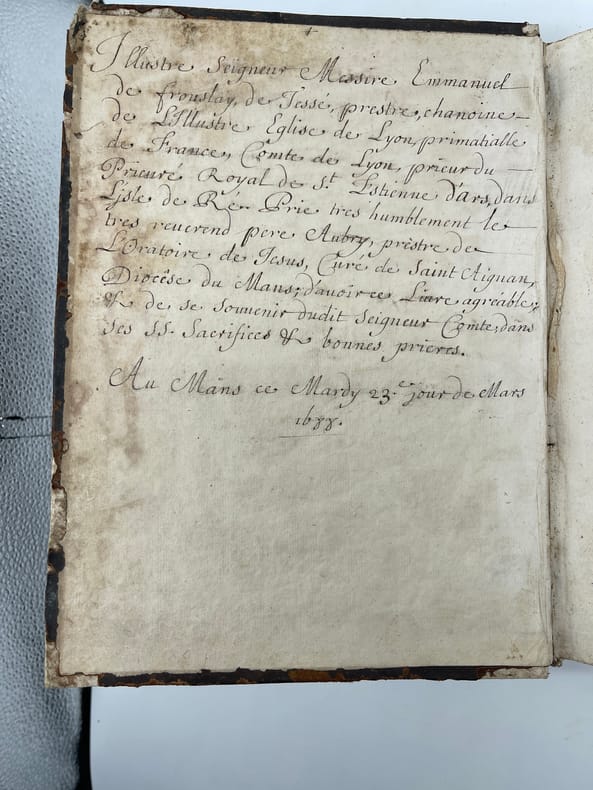 Illustre Seigneur Messire Emmanuel
de froullay, de Tessé, prestre, chanoine
de L'Illustre Eglise de Lyon, primatialle
de France, Comte de Lyon, prieur du
Prieuré Royal de St. Estienne d'ars, dans
L'isle de Ré. Prie tres humblement le
tres reverend pere Aubry, prestre de
L'Oratoire de Jesus, Curé de Saint Aignan,
Diocêse du Mans; d'avoir ce Livre agreable;
& de se souvenir dudit Seigneur Comte, dans
ses SS. Sacrifices & bonnes prieres.
Au Mans ce Mardy 23.e jour de Mars
1688.